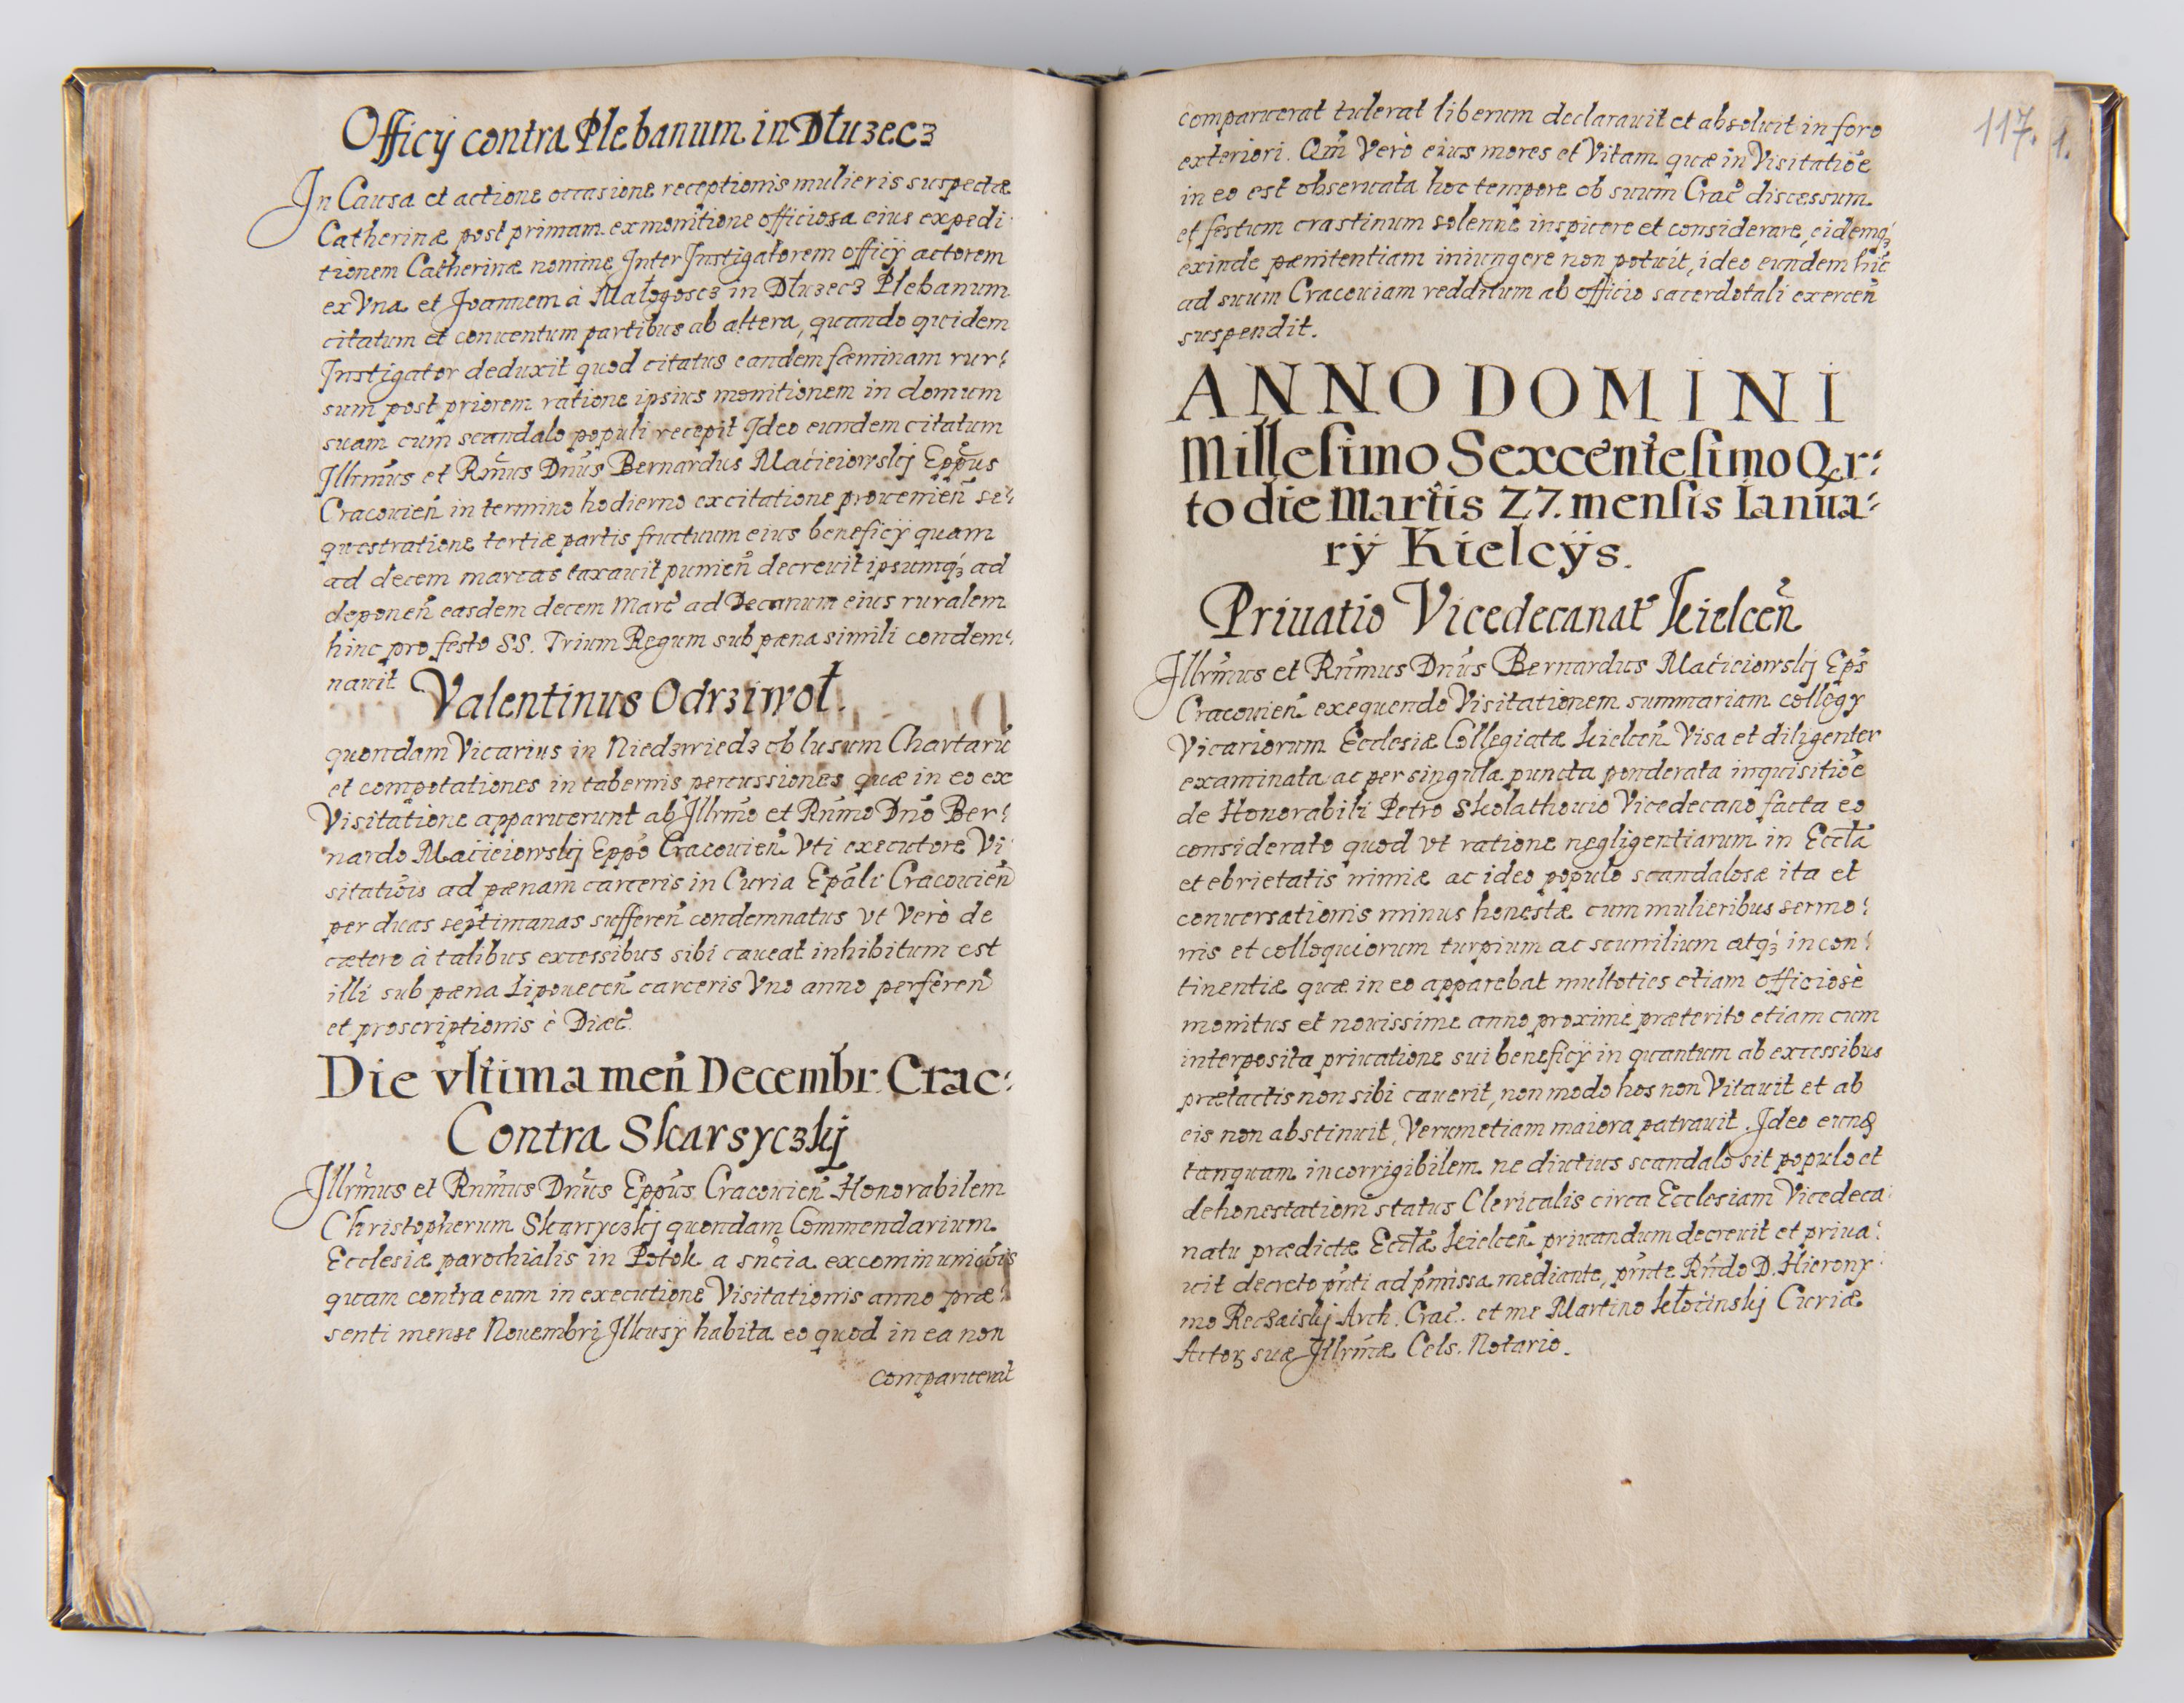 Officÿ contra Plebanum in Dłuzecz
In Causa et actione occasione receptionis mulieris suspectæ
Catherinæ post primam ex monitione officiosa eius expedi:
tionem Catherinæ nomine Inter Instigatorem officÿ actorem
ex Vna et Joannem à Małogoscz in Dłuzecz Plebanum
citatum et conuentum partibus ab altera, quando quidem
Instigator deduxit quod citatus eandem fæminam rur:
sum post priorem ratione ipsius monitionem in domum
suam cum scandalo populi recepit Ideo eundem citatum
Illrm̃us et Rm̃us Dnũs Bernardus Maćieiowskj Epp̃us
Cracouien̄ in termino hodierno ex citatione prouenien̄ se:
questratione tertiæ partis fructuum eius beneficÿ quam
ad decem marcas taxauit punien̄ decreuit ipsumq́ꝫ ad
deponen̄ easdem decem Marc̃ ad Decanum eius ruralem
hinc pro festo SS. Trium Regum sub pæna simili condem:
nauit
Valentinus Odrziwoł.
quondam Vicarius in Niedzwiedz ob lusum Chartarũ
et compotationes in tabernis percussiones quæ in eo ex
Visitatione apparuerunt ab Illrm̃o et Rm̃mo Dnõ Ber:
nardo Maćieiowskj Epp̃o Cracouien̄ Vti executore Vi:
sitatiõis ad pænam carceris in Curia Epãli Cracouien̄
per duas septimanas sufferen̄ condemnatus vt Verò de
cætero à talibus excessibus sibi caueat inhibitum est
illi sub pæna Lipouecen̄ carceris Vno anno perferen̄
et proscriptionis è Diæc̃.
Die vltima men̄ Decembr. Crac:
Contra Skarsyczkj
Illrm̃us et Rm̃mus Dnũs Epp̃us Cracouien̄ Honorabilem
Christopherum Skarsyczkj quondam Commendarium
Ecclesiæ parochialis in Potok a sn̄cia excommunicõis
quam contra eum in executione Visitationis anno præ:
senti mense Nouembri Ilkusÿ habita eo quod in ea non
comparuerat
117. 1.
comparuerat tulerat liberum declarauit et absoluit in foro
exteriori. Qm̃ Verò eius mores et Vitam quæ in Visitatiõe
in eo est obseruata hoc tempore ob suum Crac̃ discessum
et festum crastinum solenne inspicere et considerare, eidemq́ꝫ
exinde pænitentiam iniungere non potuit, ideo eundem hic
ad suum Cracouiam redditum ab officio sacerdotali exercen̄
suspendit.
ANNO DOMINI
Millesimo Sexcentesimo Qr:
to die Martis 27. mensis Ianua:
rÿ Kielcÿs.
Priuatio Vicedecanat̃ Kielcen̄
Illrm̃us et Rm̃mus Dnũs Bernardus Maćieiowskj Ep̃s
Cracouien̄ exequendo Visitationem summariam collegÿ
Vicariorum Ecclesiæ Collegiatæ Kielcen̄ Visa et diligenter
examinata ac per singula puncta ponderata inquisitiõe
de Honorabili Petro Skolathouio Vicedecano facta eo
considerato quod vt ratione negligentiarum in Eccl̃a
et ebrietatis nimiæ ac ideo populo scandalosæ ita et
conuersationis minus honestæ cum mulieribus sermo:
nis et colloquiorum turpium ac scurrilium atq́ꝫ incon:
tinentiæ quæ in eo apparebat multoties etiam officiosè
monitus et nouissime anno proximè præterito etiam cum
interposita priuatione sui beneficÿ in quantum ab excessibus
prætactis non sibi cauerit, non modo hos non Vitauit et ab
eis non abstinuit, Verum etiam maiora patrauit. Ideo eund
tanquam incorrigibilem ne diutius scandalo sit populo et
dehonestationi status Clericalis circa Ecclesiam Vicedeca:
natu prædictæ Eccl̃æ Kielcen̄ priuandum decreuit et priua:
uit decreto pn̄ti ad p̄missa mediante, pn̄te Rn̄do D. Hierony:
mo Reczaiskj Arch. Crac̃. et me Martino Kłoćinskj Curiæ
Actoꝝ suæ Illrm̃æ Cels. Notario.